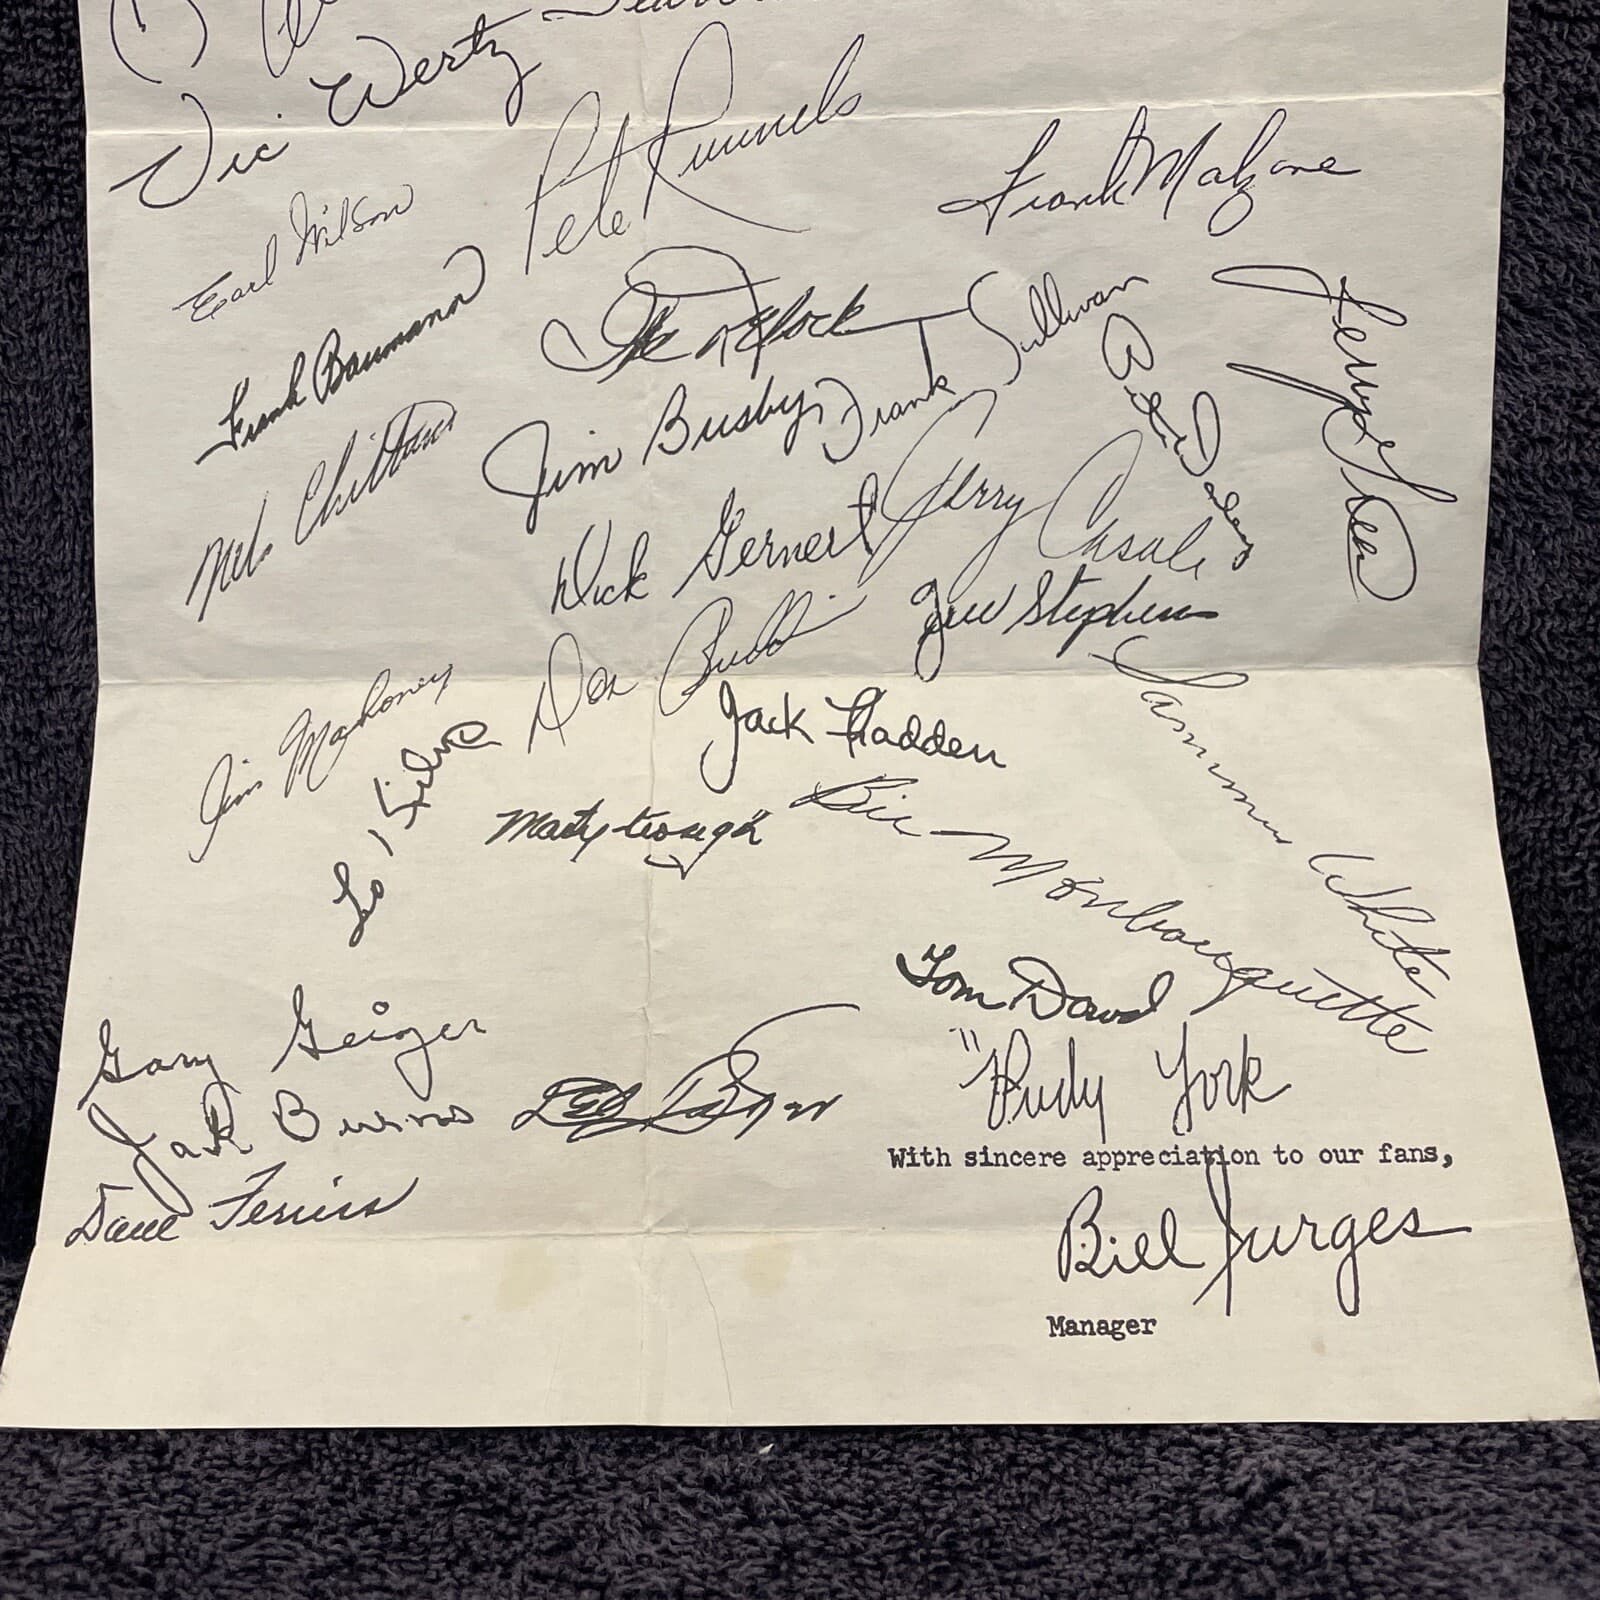 Vic Wertz
Pete Runnels
Frank Malzone
Earl Wilson
Frank Baumann
Ike Delock
Frank Sullivan
Jerry
Jim Busby
Nels Chittum
Dick Gernert
Jerry Casale
Gene Stephens
Don Buddin
Jim Mahoney
Jack Fadden
Sammy White
Marty Keough
Bill Monbouquette
Tom Dowd
Gary Geiger
"Rudy York
Jack Burns
Dave Ferriss
With sincere appreciation to our fans,
Bill Jurges
Manager